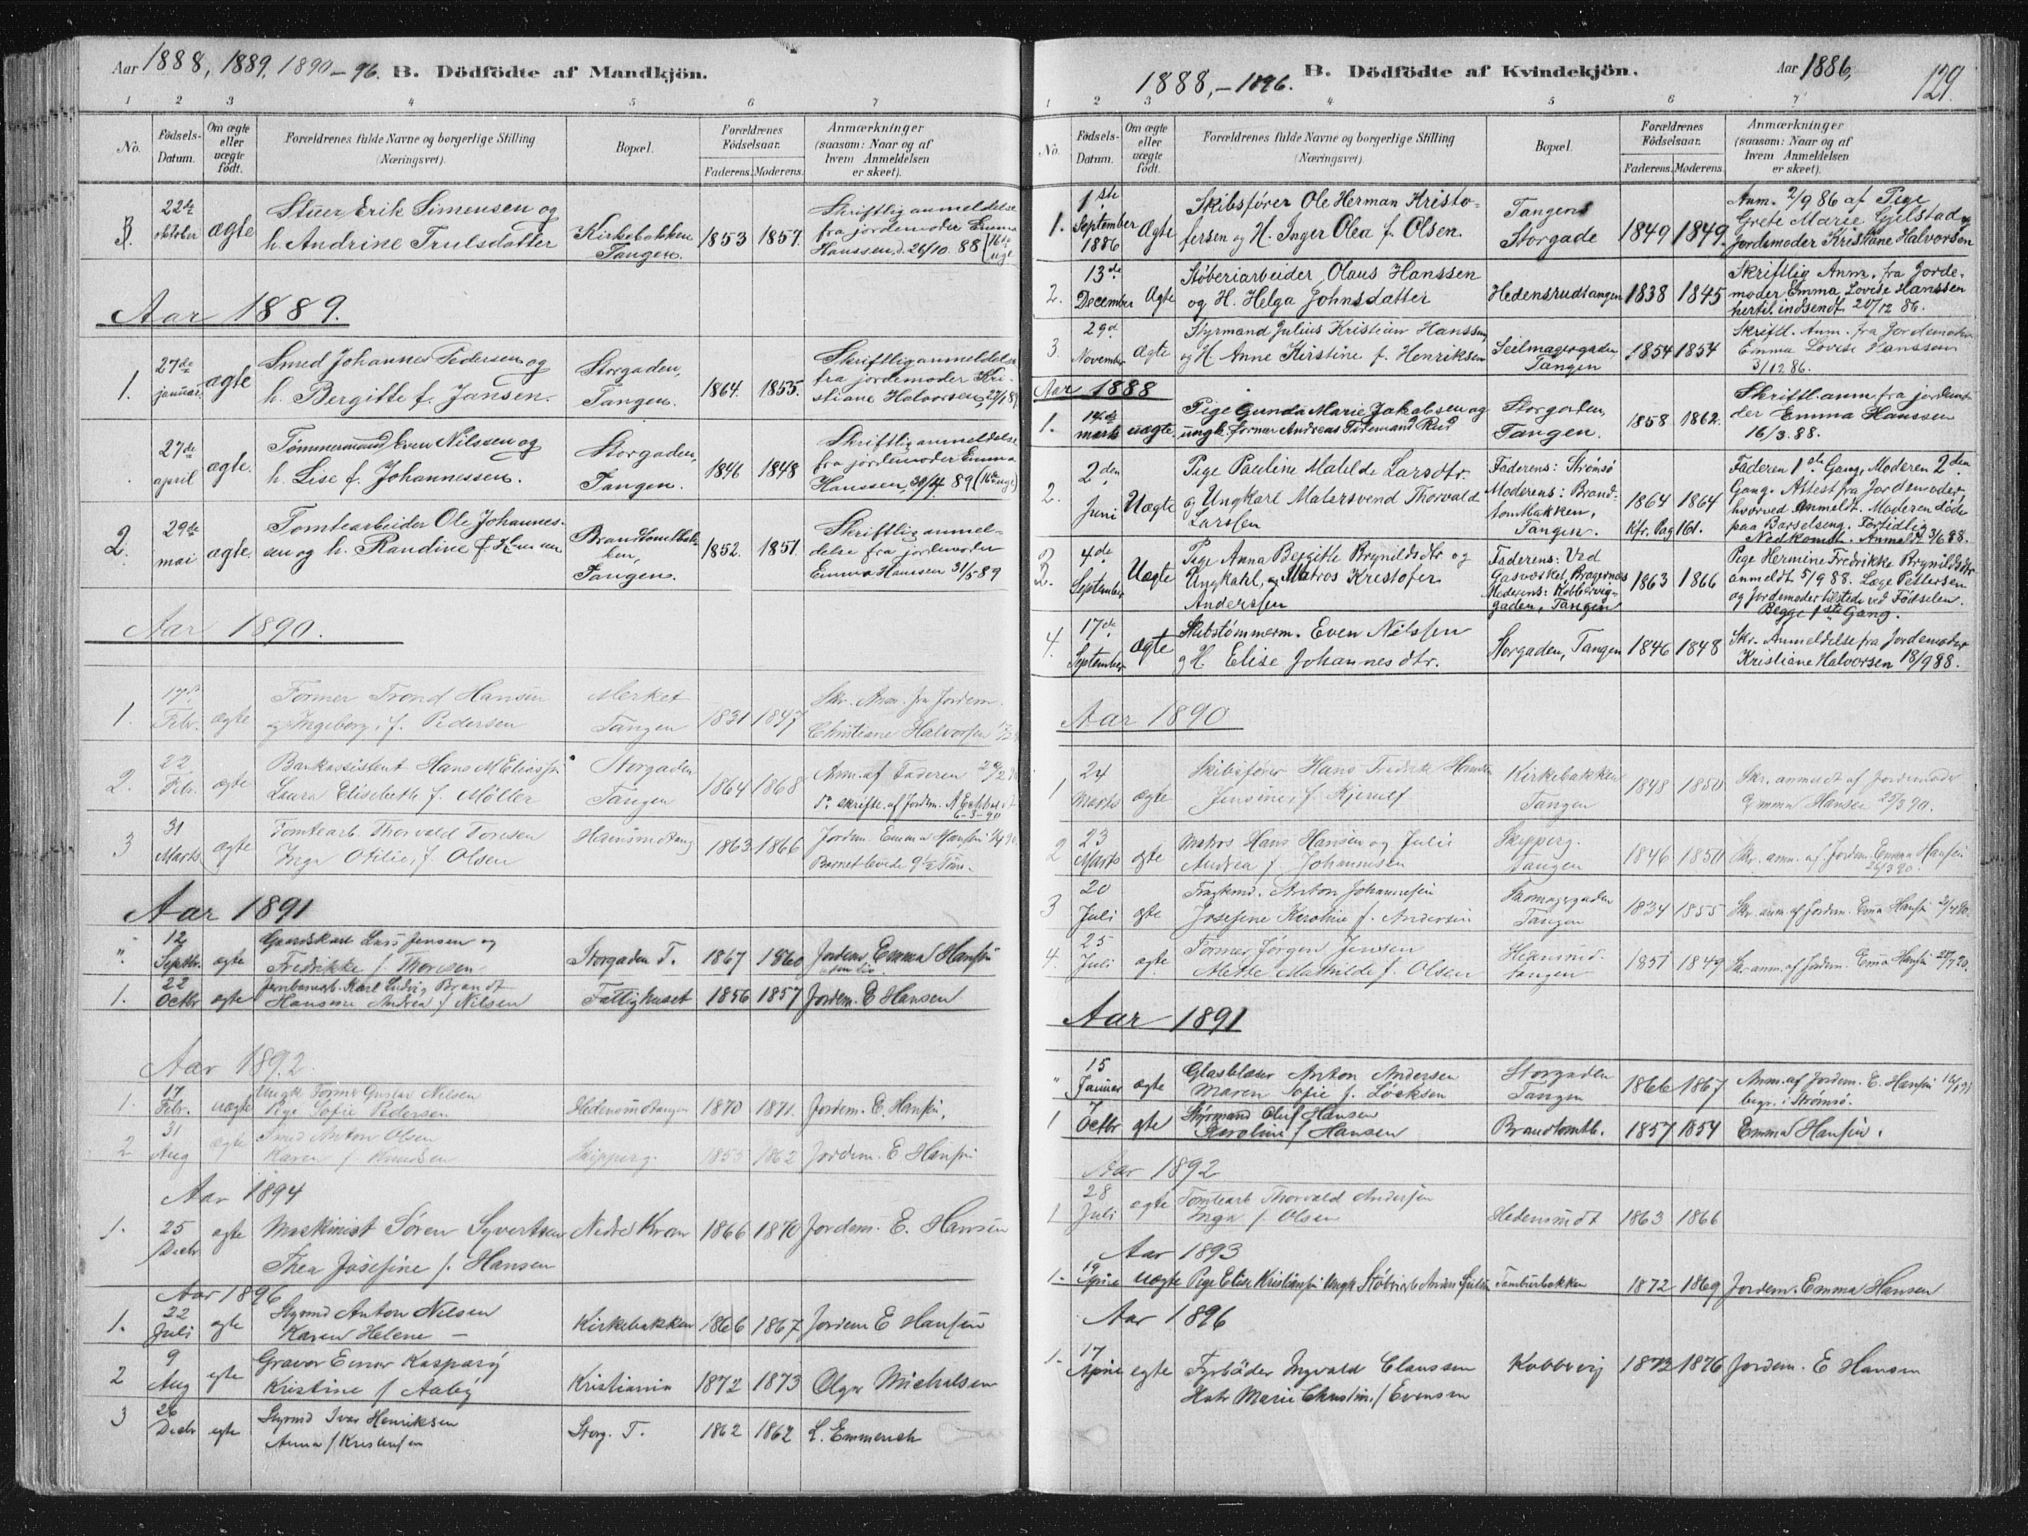 Aar 1888, 1889. 1890-96. B. Dödfödte af Mandkjön.
1 2 3 4 5 6 7
No. Födsels-Datum. Om ægte eller uægte født. Forældrenes fulde Navne og borgerlige Stilling (Næringsvei). Bopæl. Forældrenes Födselsaar. Faderens. Moderens. Anmærkninger (saasom: Naar og af hvem Anmeldelsen er skeet).
3. 22de oktober ægte Stuer Erik Simensen og Kirkebakken 1853 1857. Skriftlig anmeldelse
h. Andrine Trulsdatter Tangen. fra jordemoder Emma
Hanssen, d. 26/10 88
Aar 1889.
1. 27de januar ægte Smed Johannes Pedersen og Storgaden, 1864. 1855. Skriftlig anmeldelse
h. Bergitte f. Jansen. Tangen. fra jordemoder Kri-
stiane Halvorsen, 27/1 89
27de april ægte. Tømmermand Even Nilssen og Storgaden, 1846 1848 Skriftlig anmeldelse
h. Lise f. Johannessen. Tangen. fra jordemoder Emma
Hanssen, 30/4 89
2. 29de mai ægte. Tomtearbeider Ole Johannes- Brandtomtbak- 1852. 1851. Skriftlig anmel-
sen og h. Randine f. ken, delse fra jordemoder
Tangen. Emma Hanssen 31/5 89
Aar 1890.
1. 17 Febr. ægte Former Trond Hansen Merket 1831 1847 Skr. Anm. fra Jordem.
og Ingeborg f. Pedersen Tangen Christiane Halvorsen
2. 22 Febr. ægte Bankassistent Hans M Storgaden 1864 1868 Anm. af Faderen
Laura Elisabeth f. Møller Tangen skriftl. af Jordem.
6-3-90
3 31 Marts ægte Tomtearb Thorvald Toresen 1863 1866 Jordem Emma Hansen
Inga Otilie f. Olsen Barnet levede
Aar 1891
" 12 Septbr. ægte Gaardskarl Lars Jensen og Storgaden T. 1867 1860 Jordem. Emma Hansen
Fredrikke f. Thoresen
1. 22 Octbr ægte Karl Ludvig Brandt Fattighuset 1856 1857 Jordem. E Hansen
Hansine Andrea f Nilsen
Aar 1892
1. 17 Febr. uægte Ungk Former Gustav Nilsen 1870 1871. Jordem. E. Hansen,
Pige Sofie Pedersen
2 31 Aug ægte Smed Anton Olsen Skipperg. 1855 1862 Jordem. E Hansen
Karen f Knudsen
Aar 1894
1. 25 Decbr ægte Maskinist Søren Syvertsen Nedre Kron 1866 1870 Jordem. E. Hansen
Thea Josefine f. Hansen
Aar 1896
1. 22 Juli ægte Styrmd Anton Nilsen Kirkebakken 1866 1867 Jordem E Hansen
Karen Helene —
2 9 Aug ægte Gravør Einar Kaspary Kristiania 1872 1873 Olga Michelsen
Kristine f Aaby
3 26 Decbr ægte Styrmd Ivar Henriksen Storg. T. 1862 1862 L. Emmerich
Anna f Kristensen
1888,-1896. B. Dödfödte af Kvindekjön. Aar 1886, 129.
1 2 3 4 5 6 7
No. Födsels-Datum. Om ægte eller uægte födt. Forældrenes fulde Navne og borgerlige Stilling (Næringsvei). Bopæl. Forældrenes Födselsaar. Faderens. Moderens. Anmærkninger (saasom: Naar og af hvem Anmeldelsen er skeet).
1. 1ste September 1886 Ægte Skibsfører Ole Herman Kristo- Tangens 1849 1849. Anm. 2/9 86 af Pige
fersen og H. Inger Olea f. Olsen. Storgade Grete Marie Gjelstad og
Jordemoder Kristiane Halvorsen
2. 13de December Ægte Støberiarbeider Olaus Hanssen Hedensrudtangen 1838 1845 Skriftlig Anm. fra Jorde-
og H. Helga Johnsdatter moder Emma Lovise Hanssen
hertil indsendt 20/12 86.
3. 29d November Ægte Styrmand Julius Kristian Hanssen Seilmagergaden 1854 1854 Skriftl. Anm. fra Jordemoder
og H. Anne Kirstine f. Henriksen Tangen Emma Lovise Hanssen
3/12 86.
Aar 1888
1. 14de marts uægte. Pige Gunda Marie Jakobsen og Storgaden, 1858 1862. Skriftl. anm. fra jordemo-
ungk. former Andreas Tidemand Rud Tangen. der Emma Hanssen
16/3. 88.
2. 2den Juni Uægte Pige Pauline Matilde Larsdtr. Faderens: Strømsö 1864 1864 Faderen 1de Gang, Moderen 2den
og Ungkarl Malersvend Thorvald Moderens: Brand- Kfr. Pag 161. Gang. Attest fra Jordemoder
Larssen tomtbakken, hvorved Anmeldt. Moderen døde
Tangen. paa Barselseng. Fortidlig
Nedkomst. Anmeldt 3/6 88.
3. 4de September Uægte Pige Anna Bergitte Brynildsdtr og Faderens: Ved 1863 1866 Pige Hermine Fredrikke Brynildsdtr
Ungkarl, og Matros Kristofer Gasværket, Bragernes anmeldt 5/9 88. Læge Pettersen
Anderssen Moderens: Kobbervig- og Jordemoder tilstede ved Fødselen.
gaden, Tangen Begge 1ste Gang.
4. 17de September Ægte Skibstømmerm. Even Nilssen Storgaden, Tangen 1846 1848 Skr. Anmeldelse fra Jordemoder
og H. Elise Johannesdtr. Kristiane Halvorsen 18/9 88.
Aar 1890
1 24 Marts ægte Skibsfører Hans Fredrik Hansen Kirkebakken 1848 1850 Skr. anmeldt af Jordemoder
Jensine f. Kjerulf Tangen Emma Hansen 25/3 90.
2 23 Marts ægte Matros Hans Hansen og Julie Skipperg. 1846 1850 Skr. anm. af Jordem. Emma Hansen
Andrea f. Johannesen Tangen 26/3 90.
3 20 Juli ægte Anton Johannesen Skomagergaden 1834 1855 Skr. anm. af Jordem. Emma Hansen
Josefine Karoline f. Andersen Tangen
4. 25 Juli ægte Former Jørgen Jensen 1851 1849 Skr. anm. af Jordem. Emma Hansen
Alette Mathilde f. Olsen tangen
Aar 1891
" 15 Januar ægte Glasblæser Anton Andersen Storgaden 1866 1867 Anm. af Jordem. E. Hansen
Maren Sofie f. Tangen begr. i Strømsø.
1 7 Octbr ægte Styrmand Oluf Hansen Brandtomtb. 1857 1854 Emma Hansen.
Karoline f Hansen
Aar 1892
1 28 Juli ægte Tomtearb Thorvald Andersen 1863 1866
Inga f. Olsen
Aar 1893
1. 19 April uægte Pige Elise Kristiansen Ungk 1872 1869 Jordem. Emma Hansen
Aar 1896
1. 17 April ægte Fyrbøder Ingvald Claussen Kobbervig 1872 1876 Jordem. E Hansen
Marie Christine f Evensen